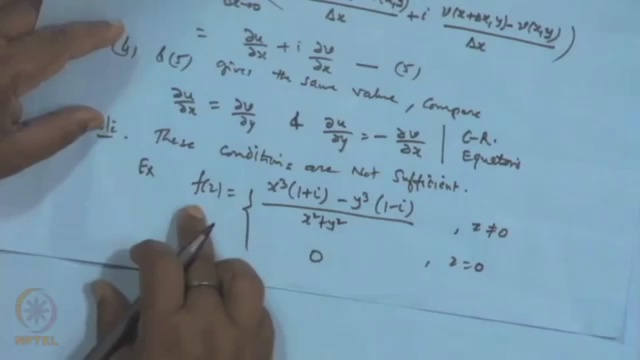 Δx→0 Δx + i v(x+Δx,y) - v(x,y) / Δx )
= ∂u/∂x + i ∂v/∂x — (5)
(4) & (5) gives the same value, Compare
∂u/∂x = ∂v/∂y & ∂u/∂y = - ∂v/∂x | C-R. Equations
These Conditions are Not Sufficient.
Ex
f(z) = { x³(1+i) - y³(1-i) / x²+y² , z≠0
0 , z=0
NPTEL